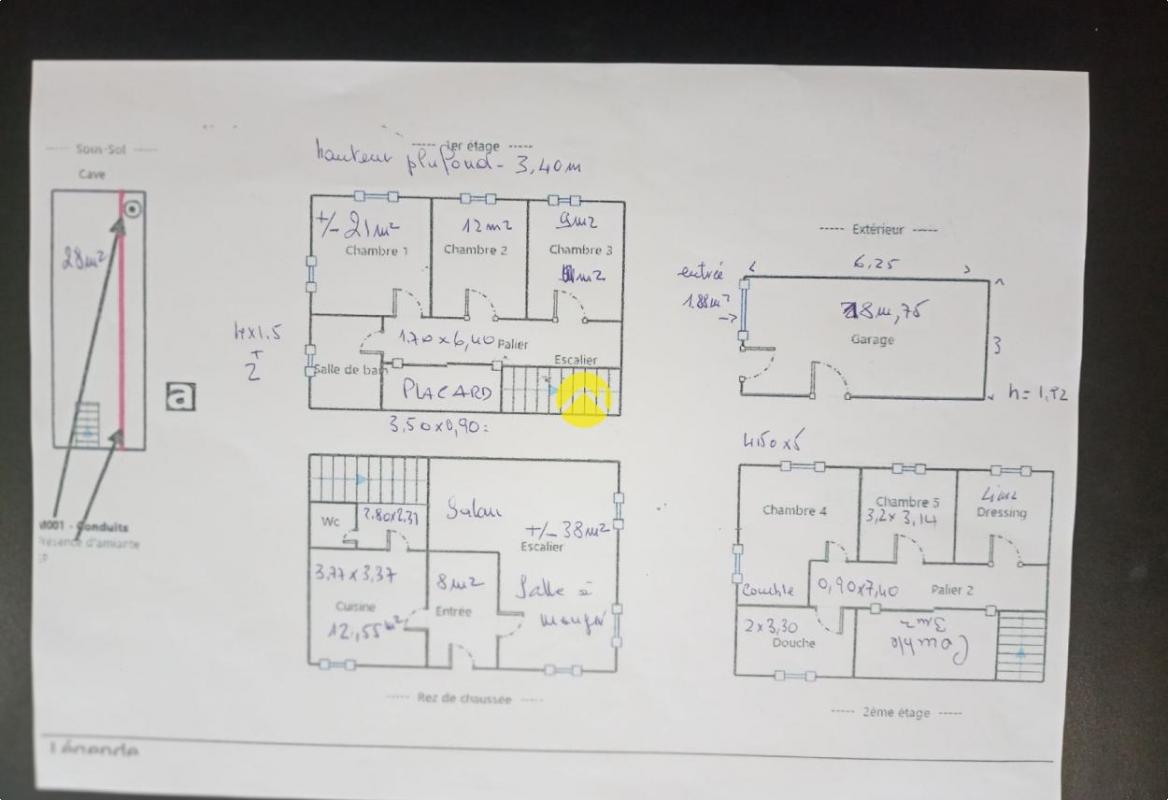 Sous-Sol
Cave
28m²
a
Conduits
Présence d'amiante
1er étage
hauteur plafond - 3,40m
+/- 21m²
Chambre 1
12m²
Chambre 2
9m²
Chambre 3
m²
1.70 x 6,40 Palier
Escalier
Salle de bain
PLACARD
3,50x0,90:
Extérieur
6,25
entrée
1.88m²
8m,75
Garage
3
h= 1,92
Salon
+/- 38m²
Escalier
Wc
2.80x2.37
3,77 x 3,37
Cuisine
12,55m²
8m²
Entrée
Salle à
manger
Rez de chaussée
4,50 x 5
Chambre 4
Chambre 5
3,2 x 3,14
Dressing
Comble
0,90x7,40
Palier 2
2 x 3,30
Douche
Comble
3m²
2ème étage
Légende